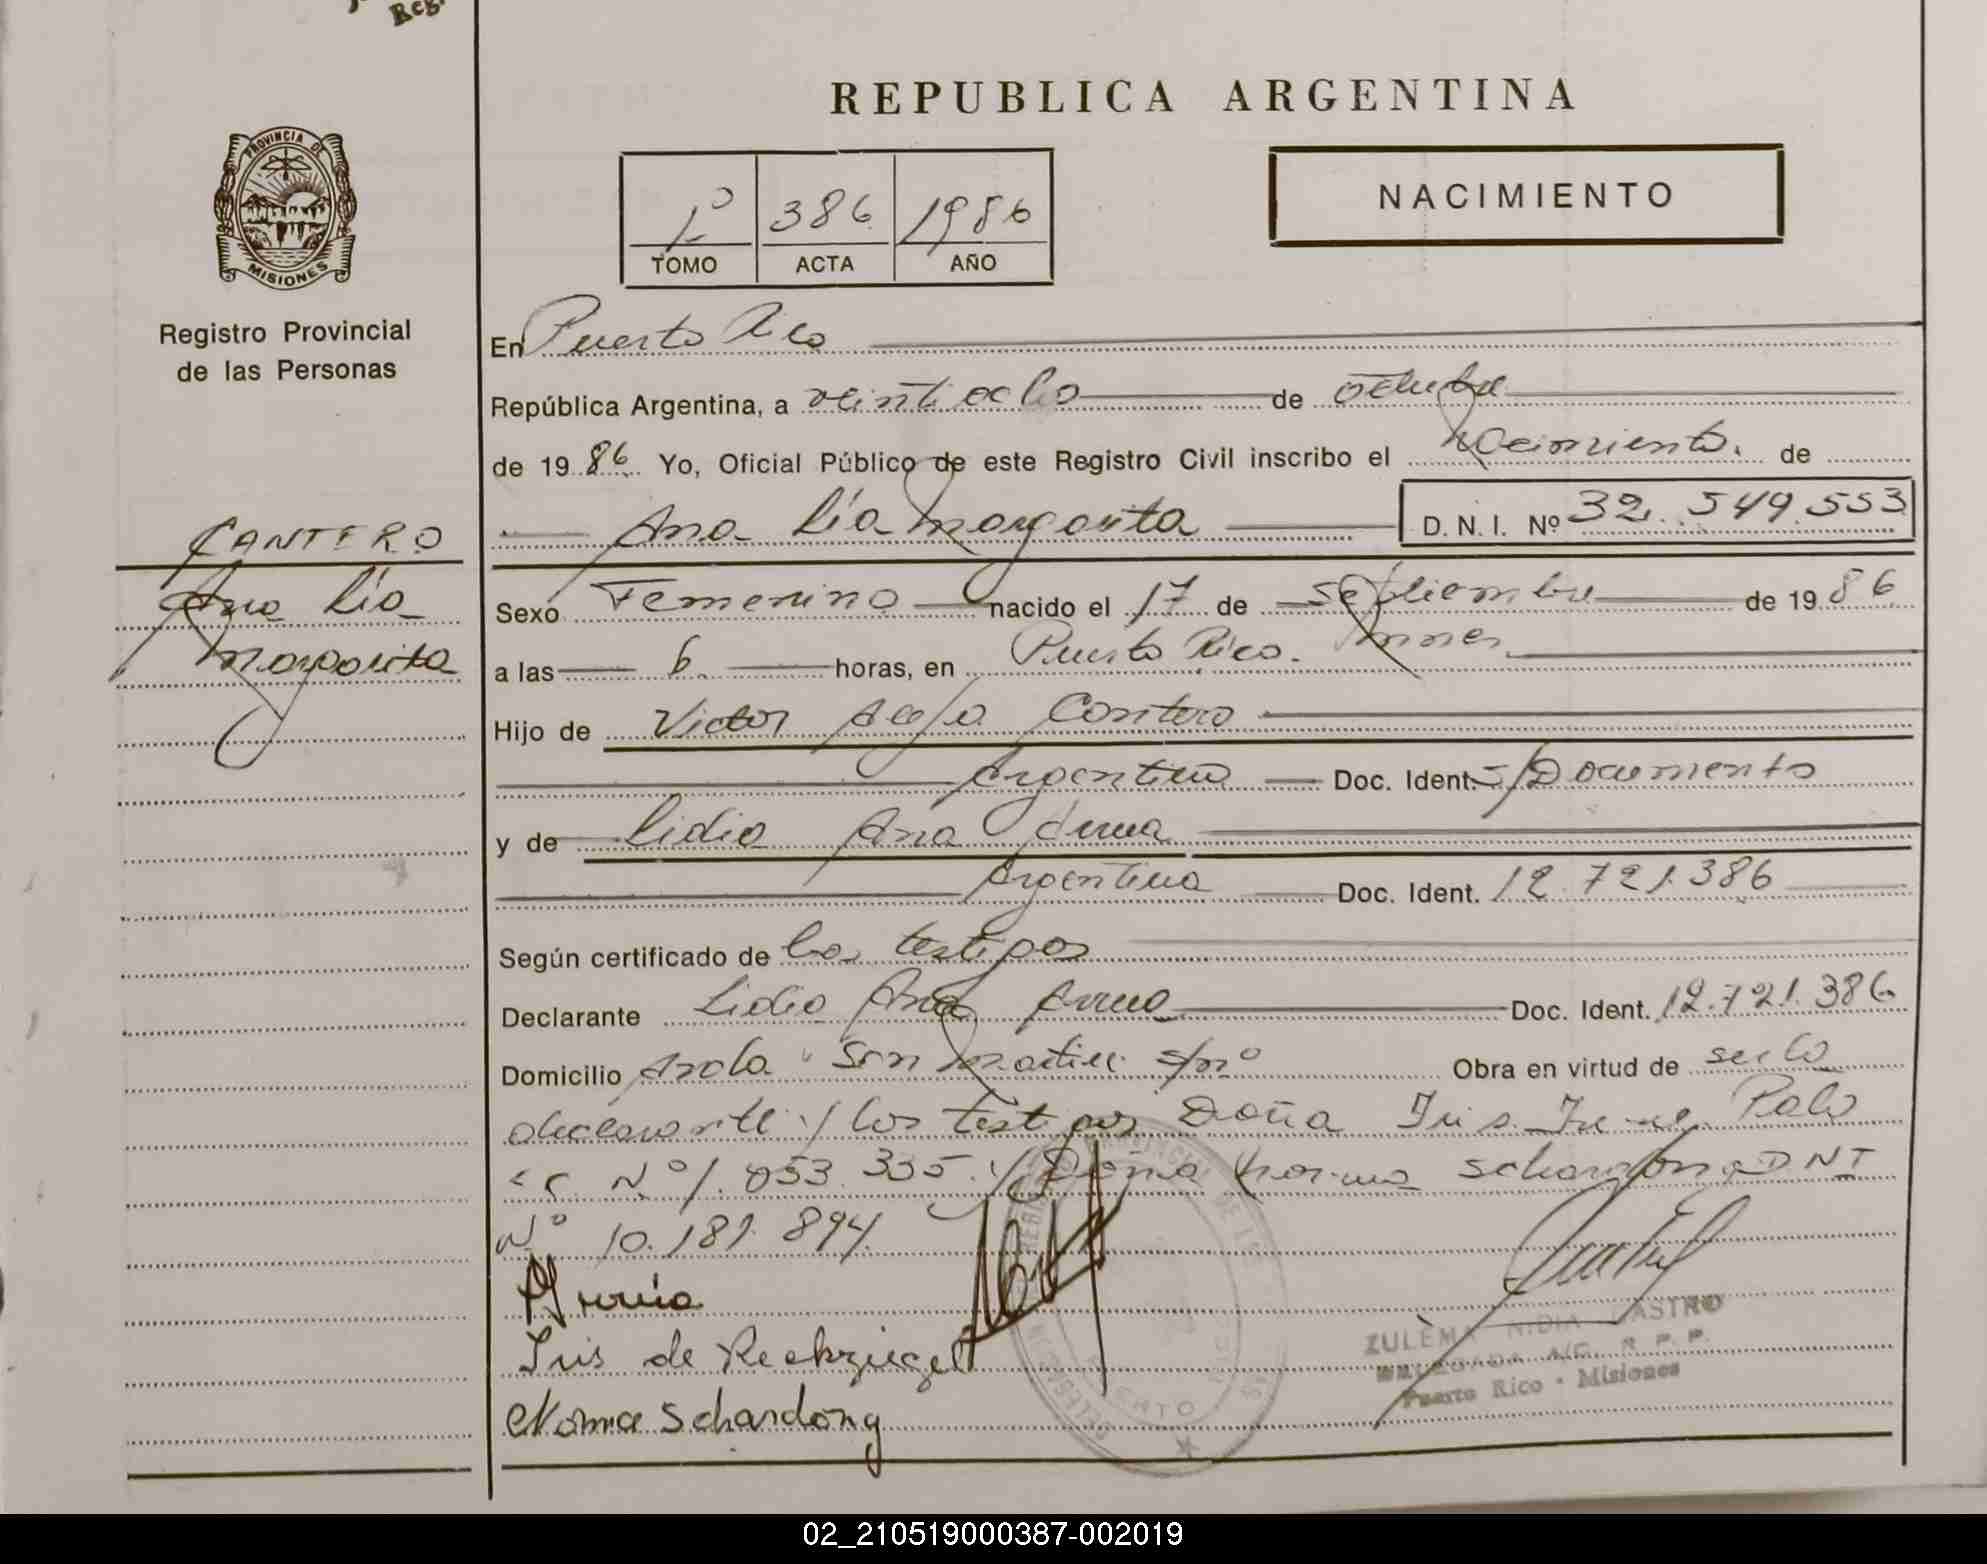 Reg.
REPUBLICA ARGENTINA
PROVINCIA DE
MISIONES
Registro Provincial
de las Personas
1º 386 1986
TOMO ACTA AÑO
NACIMIENTO
En Puerto Rico
República Argentina, a veintiocho de octubre
de 1986 Yo, Oficial Público de este Registro Civil inscribo el nacimiento. de
Ana Lía Margarita D. N. I. Nº 32.549.553
CANTERO
Ana Lía
Margarita
Sexo Femenino nacido el 17 de septiembre de 1986
a las 6 horas, en Puerto Rico. Mnes.
Hijo de Victor Cantero
Argentino Doc. Ident. s/Documento
y de Lidia Ana
Argentina Doc. Ident. 12.721.386
Según certificado de los testigos
Declarante Lidia Ana Doc. Ident. 12.721.386
Domicilio Avda. San Martin s/nº Obra en virtud de
declarante y los testigos Doña Iris
Nº 1.053.335 y Doña Norma Schardong DNI
Nº 10.181.894.
Iris de Reckziegel
Norma Schardong
ZULEMA NIDIA CASTRO
DELEGADA A/C. R. P. P.
Puerto Rico - Misiones
02_210519000387-002019